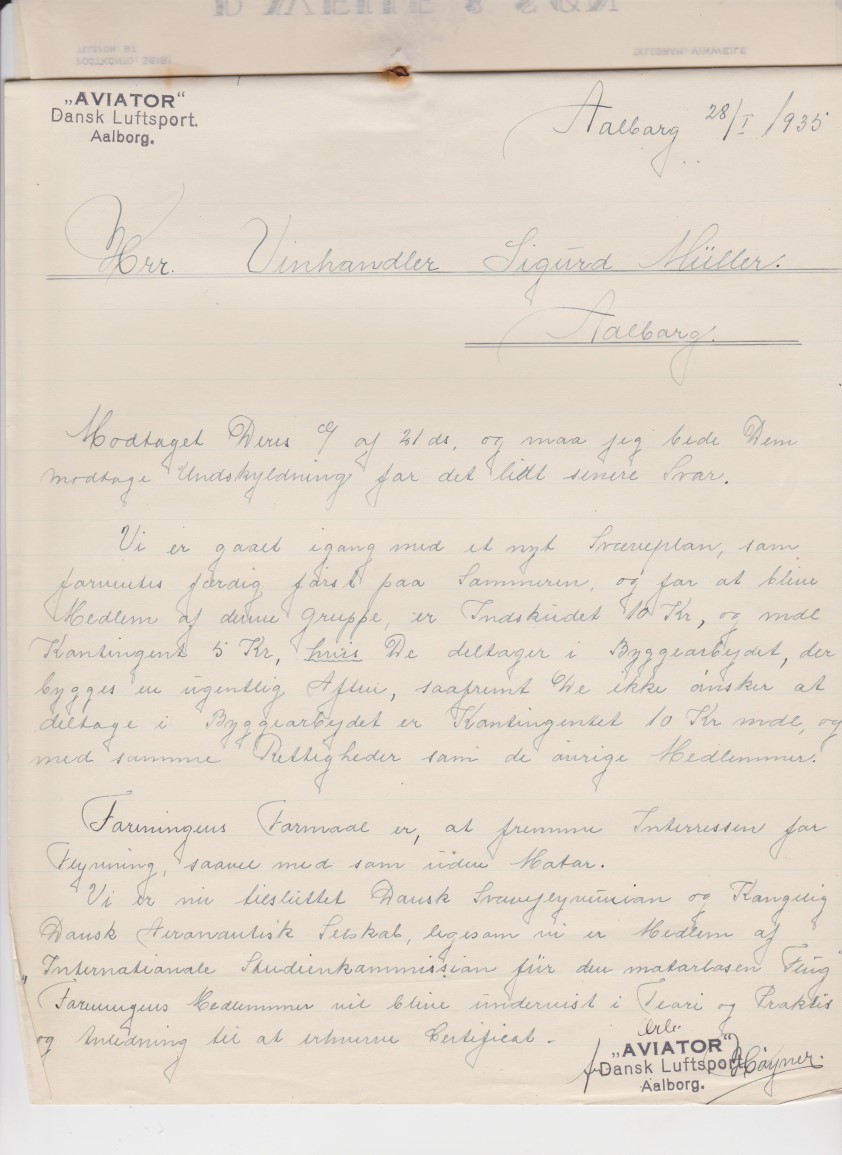 „AVIATOR“
Dansk Luftsport.
Aalborg.
Aalborg 28/I 1935
Hrr. Vinhandler Sigurd Müller.
Aalborg.
Modtaget Deres af 21 ds, og maa jeg bede Dem
modtage Undskyldning for det lidt senere Svar.
Vi er gaaet igang med et nyt Svæveplan, som
forventes færdig først paa Sommeren, og for at blive
Medlem af denne Gruppe, er Indskudet 10 Kr, og mdl
Kontingent 5 Kr, hvis De deltager i Byggearbejdet, der
bygges en ugentlig Aften, saafremt De ikke ønsker at
deltage i Byggearbejdet er Kontingentet 10 Kr mdl, og
med samme Rettigheder som de øvrige Medlemmer.
Foreningens Formaal er, at fremme Interressen for
Flyvning, saavel med som uden Motor.
Vi er nu tilsluttet Dansk Svæveflyvnunion og Kongelig
Dansk Aeronautisk Selskab, ligesom vi er Medlem af
„Internationale Studienkommission für den motorlosen Flug“
Foreningens Medlemmer vil blive undervist i Teori og Praktis
og Anledning til at erhverve Certificat.
„AVIATOR“
Dansk Luftsport
Aalborg.